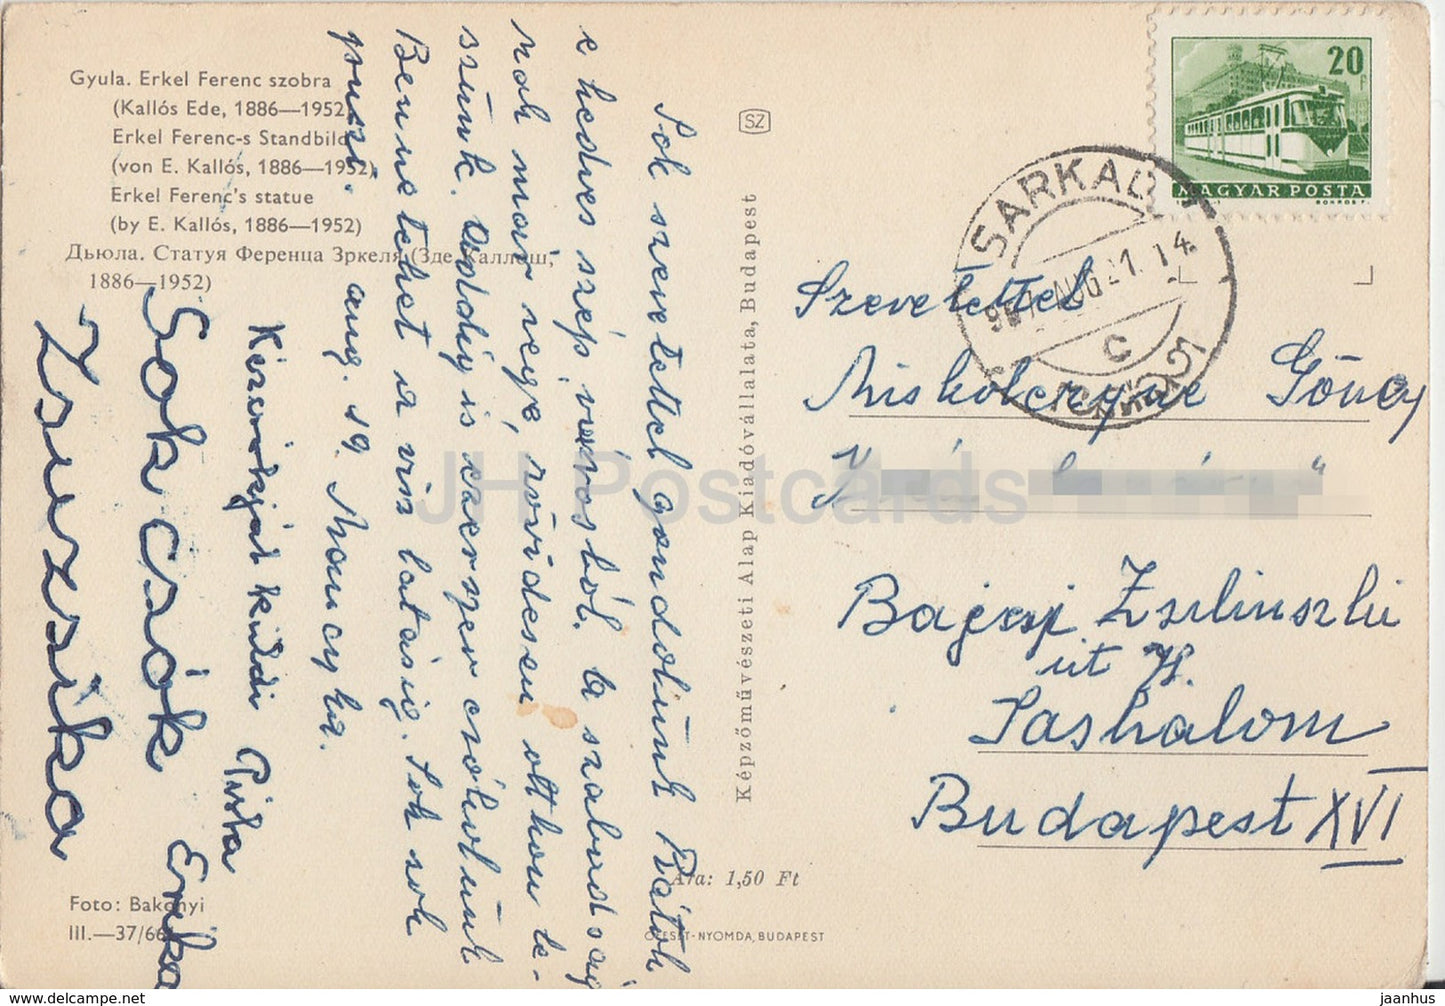 Gyula. Erkel Ferenc szobra
(Kallós Ede, 1886—1952)
Erkel Ferenc-s Standbild
(von E. Kallós, 1886—1952)
Erkel Ferenc's statue
(by E. Kallós, 1886—1952)
Дьюла. Статуя Ференца Эркеля (Эде Каллош,
1886—1952)
Sok szeretettel gondolunk Rátok
e kedves szép városból. A szabadság
nak már vége, rövidesen otthon le-
szünk. Addig is ezerszer csókolunk
Benneteket a visz látásig. Sok sok
puszi. aug. 19. Mancyka.
Kézcsókját küldi Pista
Sok csók Erika
Zsuzsika
Foto: Bakonyi
III.—37/66
SZ
Képzőművészeti Alap Kiadóvállalata, Budapest
Ára: 1,50 Ft
OFFSET-NYOMDA, BUDAPEST
20 f
MAGYAR POSTA
SARKAD
AUG 21. 14
C
Szeretettel
Miskolczyné Gönczy
Bajcsy Zsilinszky
út
Sashalom
Budapest XVI
JH Postcards
delcampe.net
jaanhus